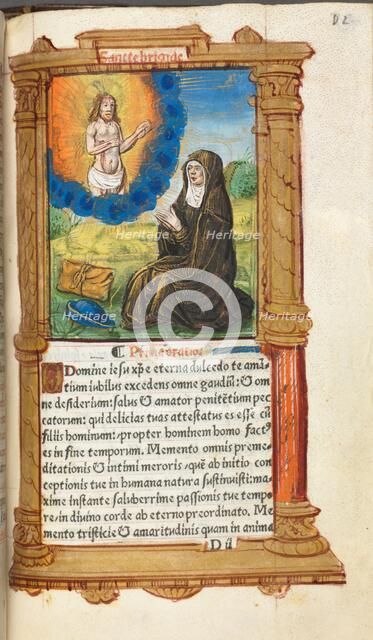 D 2
Sancte brigide
Heritage Heritage
Heritage Heritage
¶ Prima oratio
O Domine iesu xp̄e eterna dulcedo te amā⸗
tium iubilus excedens omne gaudiū: ⁊ om
ne desiderium: salus ⁊ amator penitētium pec
catorum: qui delicias tuas attestatus es esse cū
filiis hominum: propter hominem homo fact⁹
es in fine temporum. Memento omnis preme⸗
ditationis ⁊ intimi meroris, quē ab initio con⸗
ceptionis tue in humana natura sustinuisti: ma⸗
xime instante saluberrime passionis tue tempo
re, in diuino corde ab eterno preordinato. Me
mento tristicie ⁊ amaritudinis quam in anima
D ii